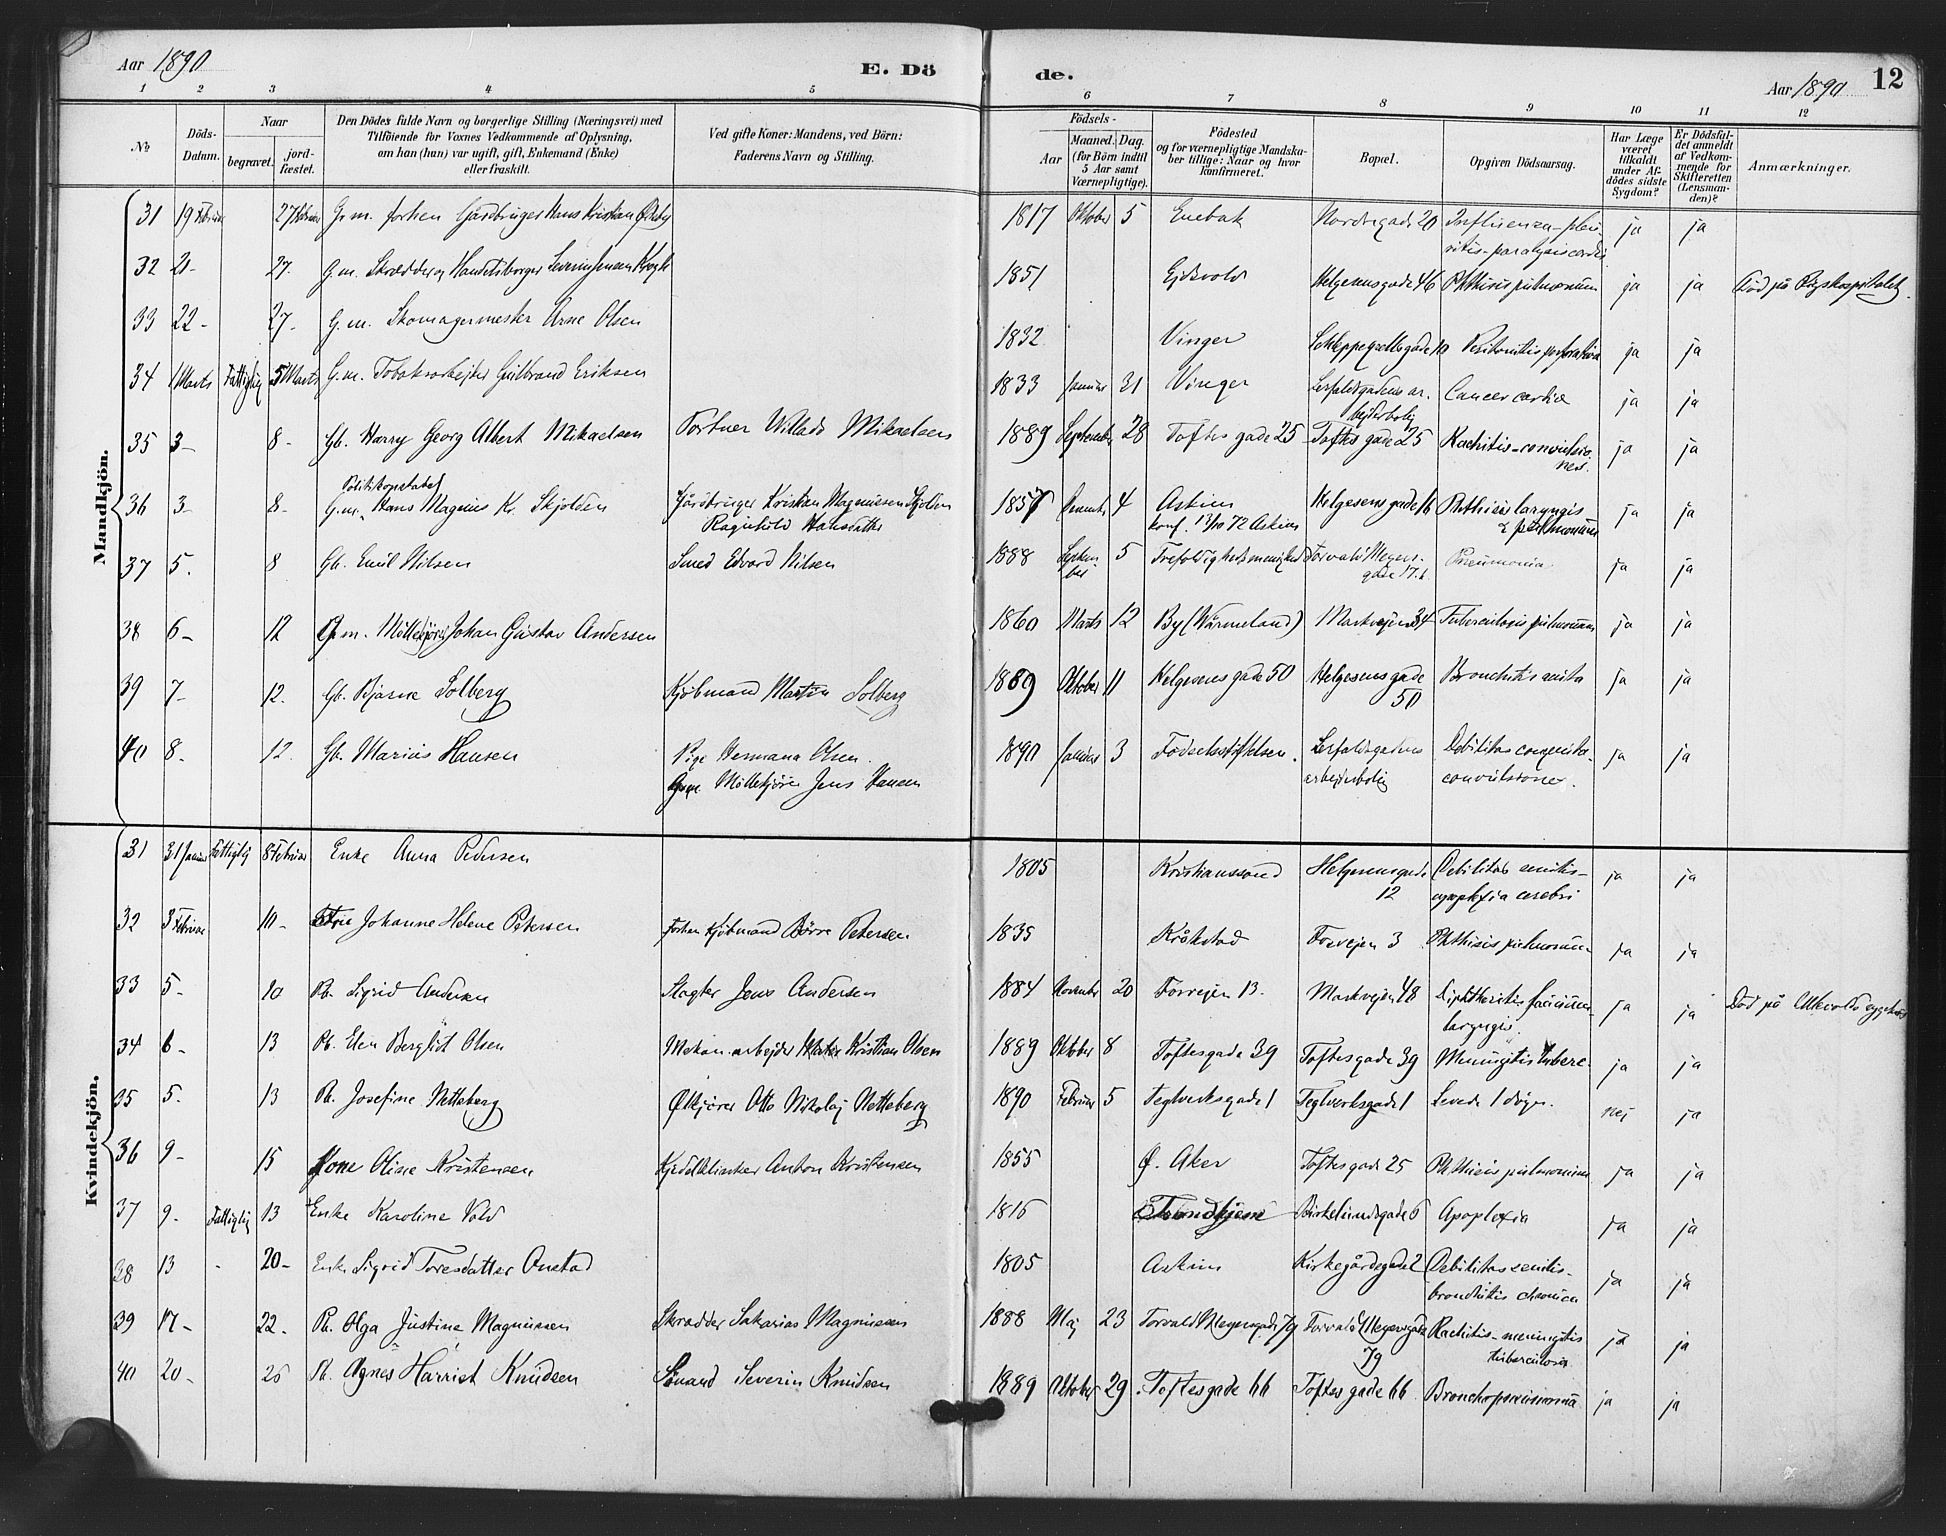 Aar 1890
E. Dö
de.
Aar 1890
12
1 2 3 4 5 6 7 8 9 10 11 12
No
Döds-Datum.
Naar
begravet.
jord-fæstet.
Den Dödes fulde Navn og borgerlige Stilling (Næringsvei) med
Tilföiende for Voxnes Vedkommende af Oplysning,
om han (hun) var ugift, gift, Enkemand (Enke)
eller fraskilt.
Ved gifte Koner: Mandens, ved Börn:
Faderens Navn og Stilling.
Födsels-
Aar
Maaned. Dag.
(for Börn indtil
5 Aar samt
Værnepligtige).
Födested
og for værnepligtige Mandska-
ber tillige: Naar og hvor
konfirmeret.
Bopæl.
Opgiven Dödsaarsag.
Har Læge
været
tilkaldt
under Af-
dödes sidste
Sygdom?
Er Dödsfal-
det anmeldt
af Vedkom-
mende for
Skifteretten
(Lensman-
den)?
Anmærkninger.
Mandkjön.
31 19 Februar 27 Februar G.m. forhen Gårdbruger Hans Kristian 1817 Oktober 5 Enebak Nordregade 20 Influenza-pleu-
ritis-paralysis cordis ja ja
32 21- 27. G.m. Skrædder og Handelsborger Severin Jensen Krogh 1851 Ejdsvold Helgesensgade 46 Phthisis pulmonum ja ja Död på Rigshospitalet.
33 22- 27- G.m. Skomagermester Arne Olsen 1832 Vinger Schleppegrellsgade 10 Peritonitis perforativa ja ja
34 1 Marts Fattiglig 5 Marts G.m. Tobaksarbejder Gulbrand Eriksen 1833 Januar 21 Vinger Lerfaldsgadens ar-
bejderbolig Cancer cardiæ ja ja
35 3- 8- Gb. Harry Georg Albert Mikaelsen Portner Willads Mikaelsen 1889 September 28 Toftes gade 25 Toftes gade 25 Rachitis-convulsio-
nes. ja ja
36 3- 8- Politikonstabel
G.m. Hans Magnus Kr. Skjolden Gårdbruger Kristian Magnussen Skjolden
Ragnhild Hansdatter 1857 4 Askim
konf. 13/10 72 Askim Helgesens gade 16 Phthisis laryngis
& pulmonum ja ja
37 5. 8 Gb. Emil Nilsen Smed Edvard Nilsen 1888 Septem-
ber 5 Trefoldigheds menighed Torvald Meyers-
gade 17.b. Pneumonia ja ja
38 6- 12 G.m. Möllekjörer Johan Gustav Andersen 1860 Marts 12 By (Wärmeland) Markvejen 34 Tuberculosis pulmonum ja ja
39 7- 12. Gb. Bjarne Solberg Kjöbmand Martin Solberg 1889 Oktober 11 Helgesens gade 50 Helgesens gade
50 Bronchitis acuta ja ja
40 8. 12. Gb. Marius Hansen Pige Hermana Olsen.
Möllekjörer Jens Hansen 1890 Januar 3 Födselsstiftelsen. Lerfaldsgadens
arbejderbolig Debilitas congenita-
convulsiones. ja ja
Kvindekjön.
31 31 Januar Fattiglig 8 Februar Enke Anna Pedersen 1805 Kristianssund Helgesensgade
12 Debilitas senilis-
apoplexia cerebri ja ja
32 3 Februar 10- Johanne Helene Petersen Forhen Kjöbmand Börre Petersen 1835 Kråkstad Fosvejen 3 Phthisis pulmonum ja ja
33 5- 10 Pb. Sigrid Andersen Slagter Jens Andersen 1884 November 20 Fosvejen 13. Markvejen 48 Diphtheritis faucium-
laryngis. ja ja
34 6- 13 Pb. Elen Bergliot Olsen Mekan. arbejder Kristian Olsen 1889 Oktober 8 Toftesgade 39 Toftesgade 39 Meningitis tuberc. ja ja
35 5. 13 Pb. Josefine Netteberg Ölkjörer Otto Nikolaj Netteberg 1890 Februar 5 Teglverksgade 1 Teglverksgade 1 Levede 1 dögn. nej ja
36 9- 15 Kone Oline Kristensen Kjedelklinker Anton Kristensen 1855 Ö. Aker Toftesgade 25 Phthisis pulmonum ja ja
37 9. Fattiglig 13 Enke Karoline Vold 1816 Trondhjem Birkelundsgade 6 Apoplexia ja ja
38 13 20- Enke Sigrid Toresdatter Onstad 1805 Askim Kirkegårdsgade 2 Debilitas senilis-
bronchitis chronica ja ja
39 17- 22. Pb. Olga Justine Magnussen Skrædder Sakarias Magnussen 1888 Maj 23 Torvald Meyersgade 79 Torvald Meyersgade
79 Rachitis-meningitis
tuberculosa ja ja
40 20- 26 Pb. Agnes Harriet Knudsen Severin Knudsen 1889 Oktober 29 Toftesgade 66 Toftes gade 66 Bronchopneumonia ja ja